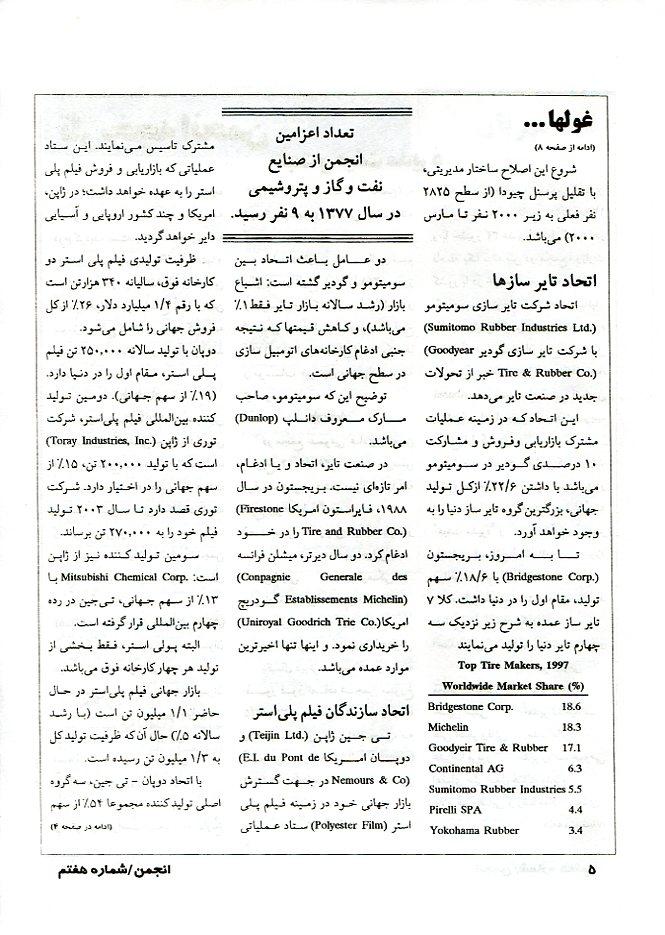 غولها...
(ادامه از صفحه ۸)
شروع این اصلاح ساختار مدیریتی،
با تقلیل پرسنل چیودا (از سطح ۲۸۲۵
نفر فعلی به زیر ۲۰۰۰ نفر تا مارس
۲۰۰۰) می‌باشد.
اتحاد تایر سازها
اتحاد شرکت تایر سازی سومیتومو
(Sumitomo Rubber Industries Ltd.)
با شرکت تایر سازی گودیر (Goodyear
Tire & Rubber Co.) خبر از تحولات
جدید در صنعت تایر می‌دهد.
این اتحاد که در زمینه عملیات
مشترک بازاریابی وفروش و مشارکت
۱۰ درصدی گودیر در سومیتومو
می‌باشد با داشتن ۲۲/۶٪ ازکل تولید
جهانی، بزرگترین گروه تایر ساز دنیا را به
وجود خواهد آورد.
تا به امروز، بریجستون
(Bridgestone Corp.) با ۱۸/۶٪ سهم
تولید، مقام اول را در دنیا داشت. کلا ۷
تایر ساز عمده به شرح زیر نزدیک سه
چهارم تایر دنیا را تولید می‌نمایند
Top Tire Makers, 1997
Worldwide Market Share (%)
Bridgestone Corp. 18.6
Michelin 18.3
Goodyeir Tire & Rubber 17.1
Continental AG 6.3
Sumitomo Rubber Industries 5.5
Pirelli SPA 4.4
Yokohama Rubber 3.4
تعداد اعزامین
انجمن از صنایع
نفت و گاز و پتروشیمی
در سال ۱۳۷۷ به ۹ نفر رسید.
دو عامل باعث اتحاد بین
سومیتومو و گودیر گشته است: اشباع
بازار (رشد سالانه بازار تایر فقط ۱٪
می‌باشد)، و کاهش قیمتها که نتیجه
جنبی ادغام کارخانه‌های اتومبیل سازی
در سطح جهانی است.
توضیح این که سومیتومو، صاحب
مارک معروف دانلپ (Dunlop)
می‌باشد.
در صنعت تایر، اتحاد و یا ادغام،
امر تازه‌ای نیست. بریجستون در سال
۱۹۸۸، فایراستون امریکا (Firestone
Tire and Rubber Co.) را در خود
ادغام کرد. دو سال دیرتر، میشلن فرانسه
(Conpagnie Generale des
Establissements Michelin) گودریچ
امریکا (Uniroyal Goodrich Trie Co.)
را خریداری نمود. و اینها تنها اخیرترین
موارد عمده می‌باشد.
اتحاد سازندگان فیلم پلی‌استر
تی جین ژاپن (Teijin Ltd.) و
دوپان امریکا (E.I. du Pont de
Nemours & Co) در جهت گسترش
بازار جهانی خود در زمینه فیلم پلی
استر (Polyester Film) ستاد عملیاتی
مشترک تاسیس می‌نمایند. این ستاد
عملیاتی که بازاریابی و فروش فیلم پلی
استر را به عهده خواهد داشت؛ در ژاپن،
امریکا و چند کشور اروپایی و آسیایی
دایر خواهد گردید.
ظرفیت تولیدی فیلم پلی استر دو
کارخانه فوق، سالیانه ۳۴۰ هزارتن است
که با رقم ۱/۴ میلیارد دلار، ۲۶٪ از کل
فروش جهانی را شامل می‌شود.
دوپان با تولید سالانه ۲۵۰,۰۰۰ تن فیلم
پلی استر، مقام اول را در دنیا دارد.
(۱۹٪ از سهم جهانی). دومین تولید
کننده بین‌المللی فیلم پلی‌استر، شرکت
توری از ژاپن (Toray Industries, Inc.)
است که با تولید ۲۰۰,۰۰۰ تن، ۱۵٪ از
سهم جهانی را در اختیار دارد. شرکت
توری قصد دارد تا سال ۲۰۰۳ تولید
فیلم خود را به ۲۷۰,۰۰۰ تن برساند.
سومین تولید کننده نیز از ژاپن
است: Mitsubishi Chemical Corp. با
۱۳٪ از سهم جهانی، تی‌جین در رده
چهارم بین‌المللی قرار گرفته است.
البته پولی استر، فقط بخشی از
تولید هر چهار کارخانه فوق می‌باشد.
بازار جهانی فیلم پلی‌استر در حال
حاضر ۱/۱ میلیون تن است (با رشد
سالانه ۵٪) حال آن‌که ظرفیت تولیدکل
به ۱/۳ میلیون تن رسیده است.
با اتحاد دوپان - تی جین، سه گروه
اصلی تولید کننده مجموعا ۵۴٪ از سهم
(ادامه در صفحه ۴)
۵
انجمن/شماره هفتم